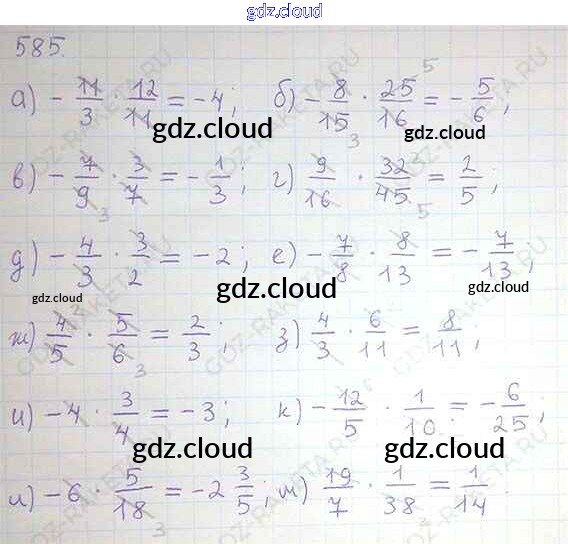 gdz.cloud
585.
а) - 11/3 · 12/11 = -4; б) - 8/15 · 25/16 = - 5/6;
gdz.cloud gdz.cloud
в) - 7/9 · 3/7 = - 1/3; г) 9/16 · 32/45 = 2/5;
д) - 4/3 · 3/2 = -2; е) - 7/8 · 8/13 = - 7/13;
gdz.cloud gdz.cloud gdz.cloud
ж) 4/5 · 5/6 = 2/3; з) 4/3 · 6/11 = 8/11;
и) -4 · 3/4 = -3; к) - 12/5 · 1/10 = - 6/25;
gdz.cloud gdz.cloud
л) -6 · 5/18 = -2 3/5; м) 19/7 · 1/38 = 1/14.
gdz.cloud